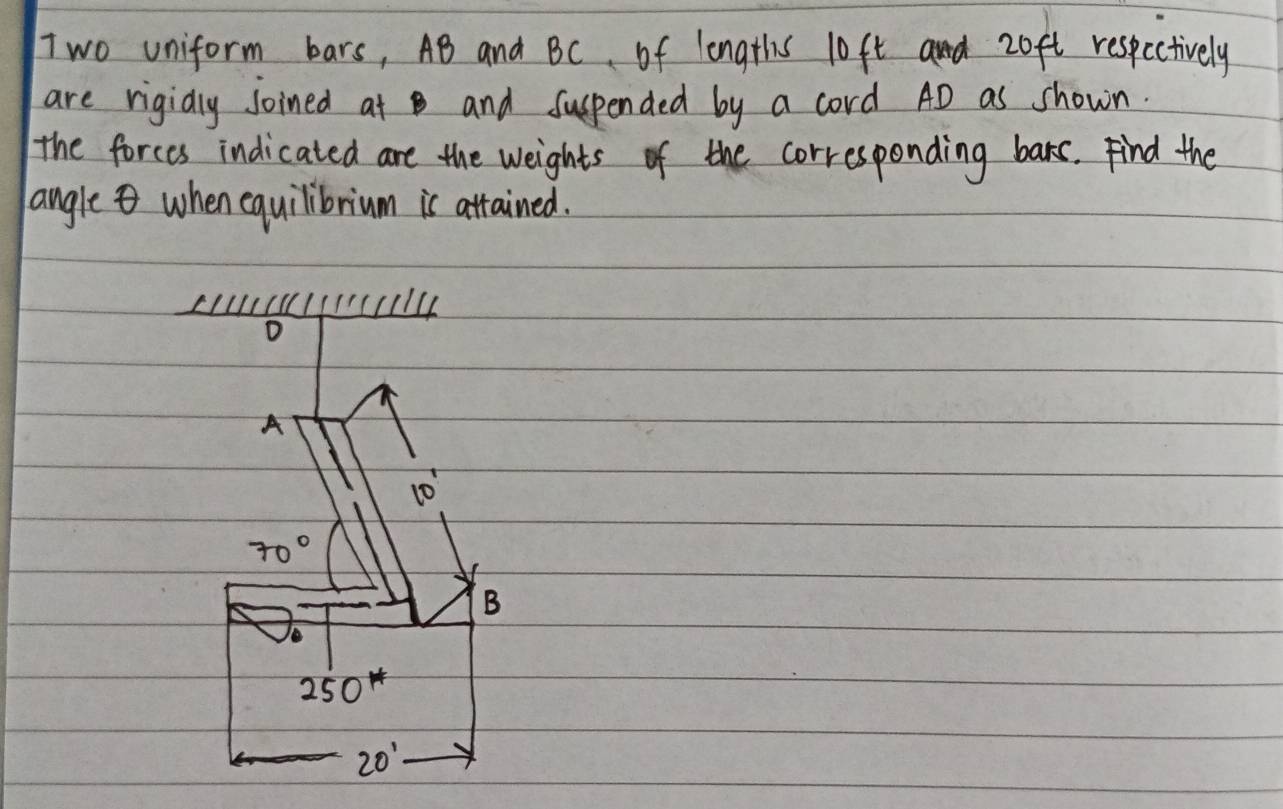 Two uniform bars, AB and BC, of lengths 10ft and 20ft respectively
are rigidly joined at B and suspended by a cord AD as shown.
the forces indicated are the weights of the corresponding bars. Find the
angle θ when equilibrium is attained.
D
A
10'
70°
B
θ
250#
20'